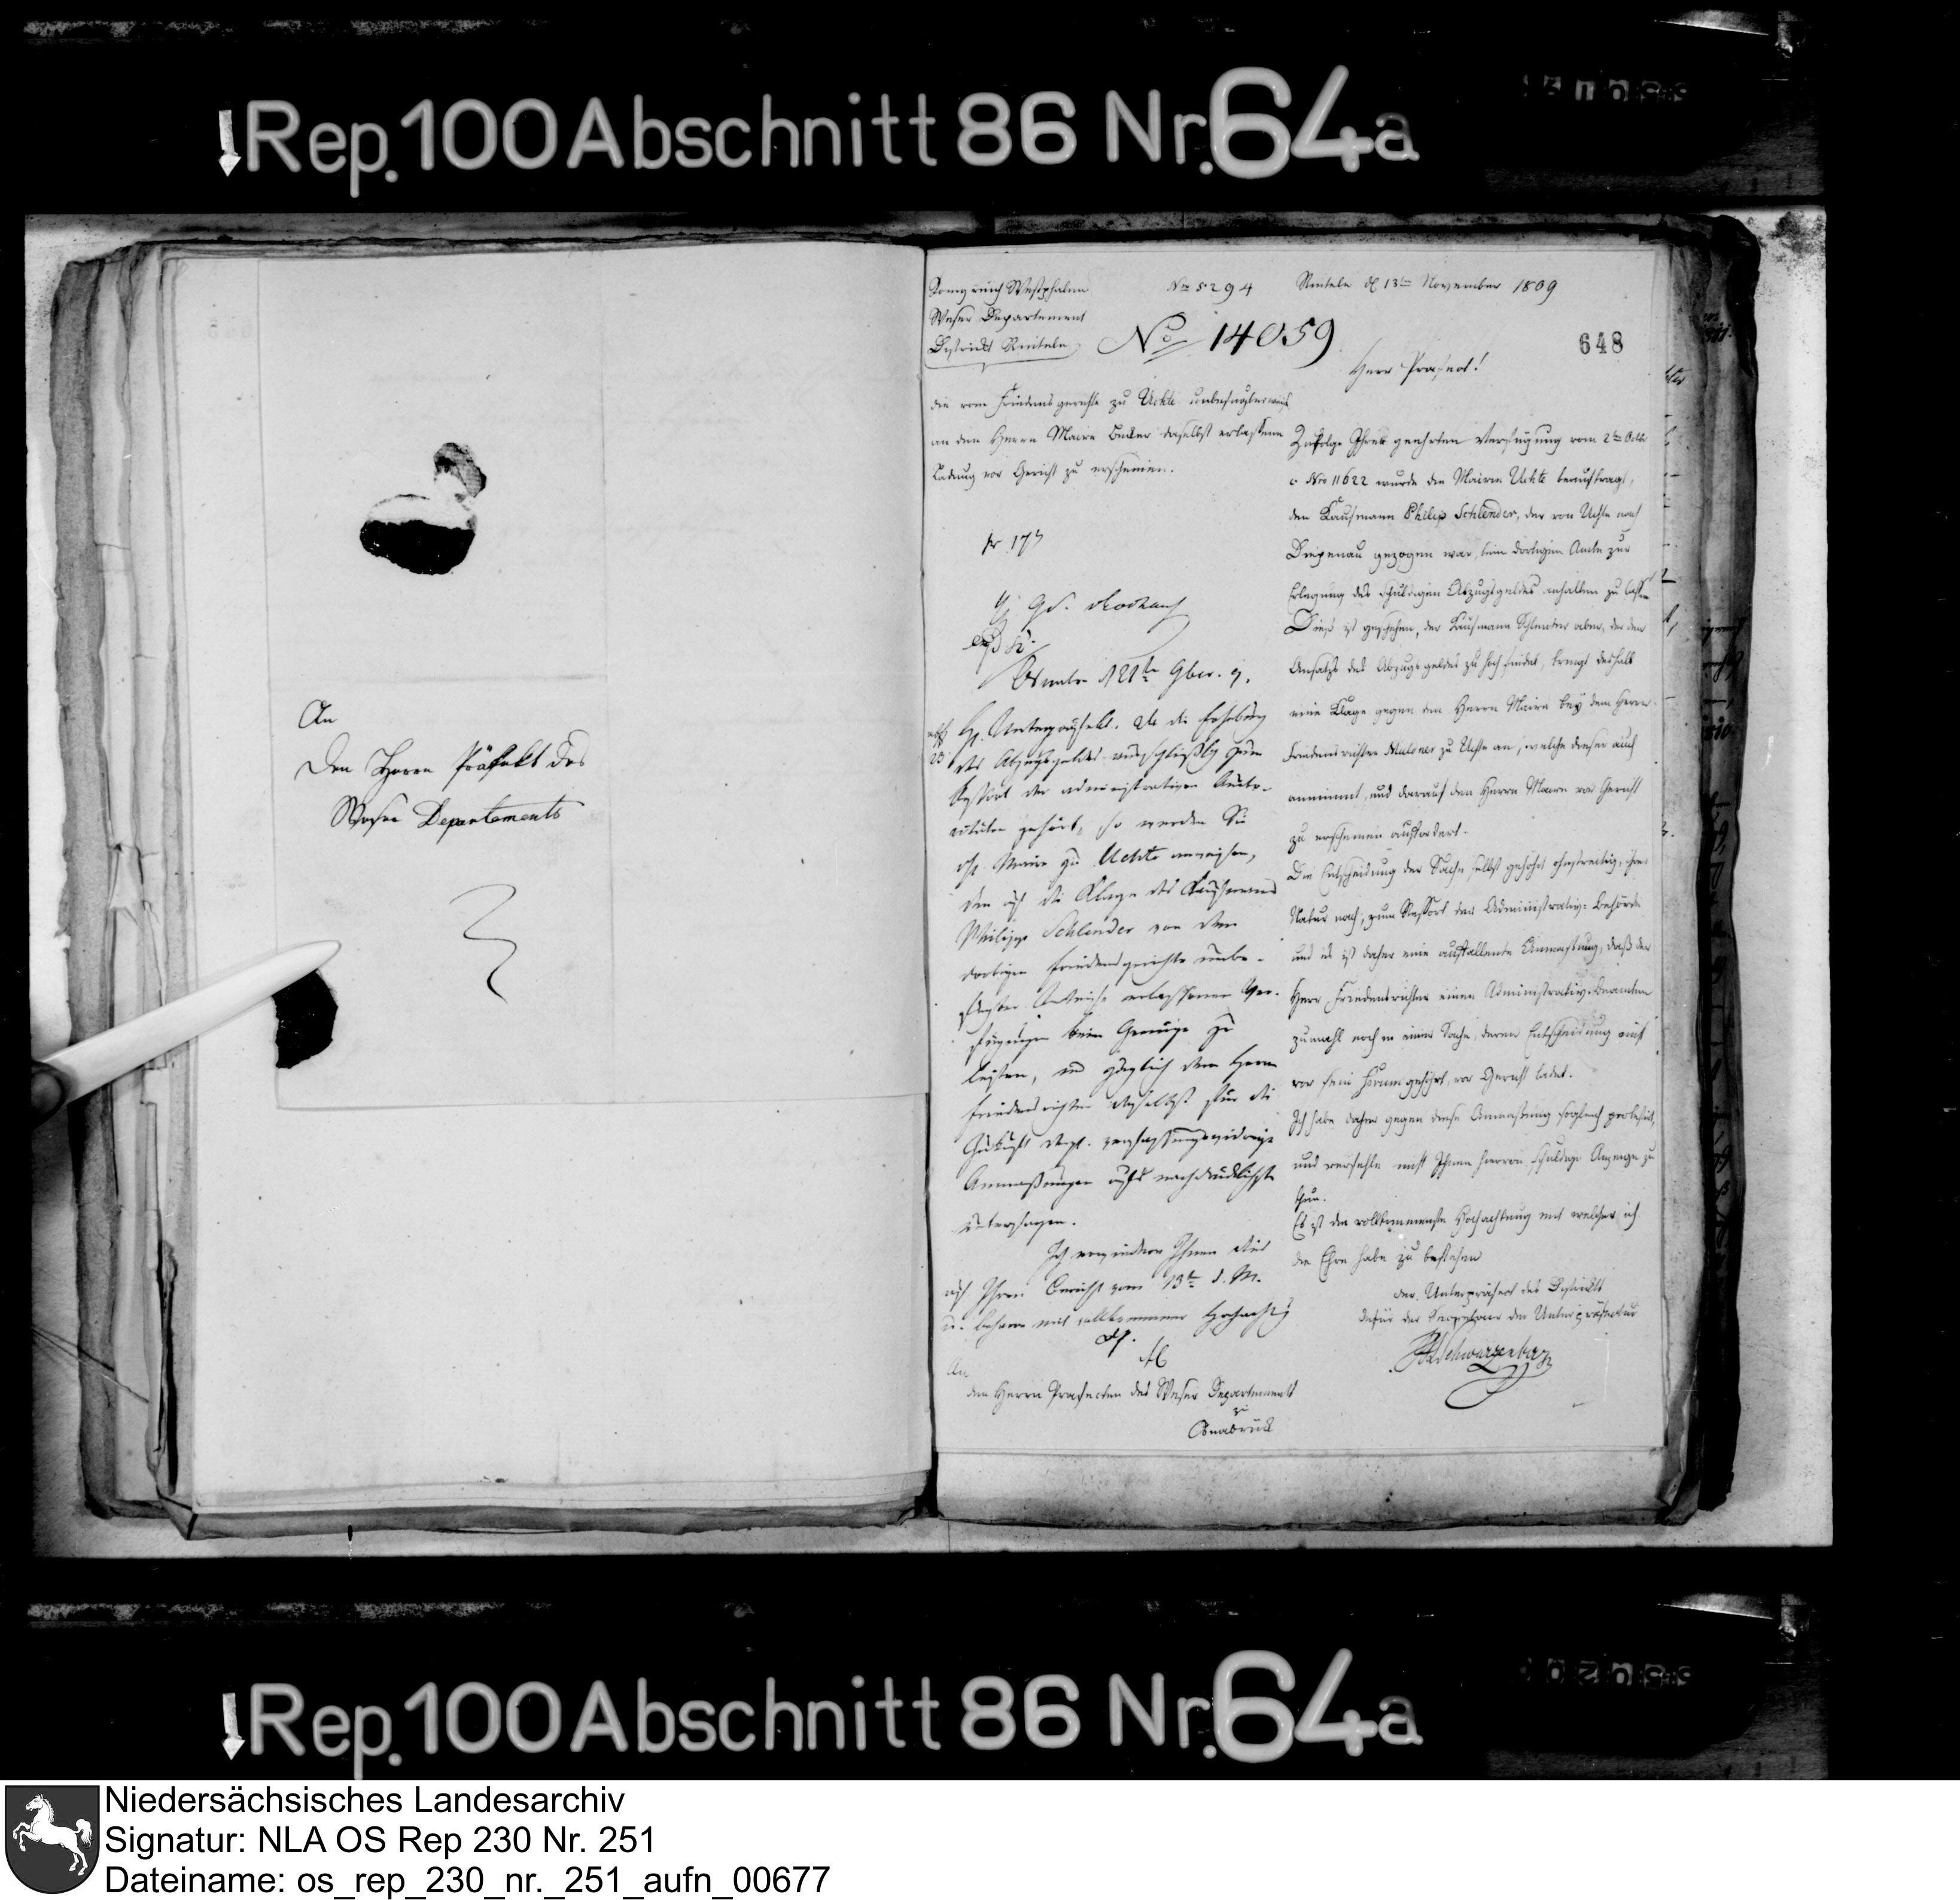 Rep. 100 Abschnitt 86 Nr. 64a
An
den Herrn Präfekt des
Weser Departements
Königreich Westphalen
Weser Departement
District Rinteln
Nro 5294
Rinteln d 13ten November 1809
No 14059
648
Herr Praefect!
die vom Friedensgerichte zu Uchte unbefugterweise
an den Herrn Maire Becker daselbst erlassene
Ladung vor Gericht zu erscheinen.
pr 17
Osnabr. 21te 9ber. 9.
H. Unterpräfekt. Da die
des Abzugsgeldes zum
Ressort der administrativen Auto-
ritäten gehört, so werden Sie
H. Maire zu Uchte anweisen,
den auf die Klage des Kaufmanns
Philipp Schlender von dem
dortigen Friedensgerichte unbe-
erlassenen Ver-
fügungen keine Genüge zu
leisten, und dem Herrn
Friedensrichter daselbst für die
Zukunft dergl. verfassungswidrige
Anmaßungen aufs nachdrücklichste
untersagen.
Ich Ihnen dies
auf Ihren Bericht vom 13t d. M.
u. beharre mit vollkommener Hochachtg
An
den Herrn Praefecten des Weser Departements
zu
Osnabrück
Zufolge Ihrer geehrten Verfügung vom 2ten Octbr
c. Nro 11622 wurde der Maire Uchte beauftragt,
den Kaufmann Philip Schlender, der von Uchte nach
Diepenau gezogen war, beim dortigen Amte zur
Erlegung des schuldigen Abzugsgeldes anhalten zu lassen
Dieß ist geschehen, der Kaufmann Schlender aber, der den
Ansatz des Abzugsgeldes zu hoch findet, bringt deshalb
eine Klage gegen den Herrn Maire bey dem Herrn
Friedensrichter zu Uchte an, welche dieser auch
annimmt, und darauf den Herrn Maire vor Gericht
zu erscheinen auffordert.
Die Entscheidung der Sache selbst gehöret ohnstreitig, ihrer
Natur nach, zum Ressort der Administrativ-Behörde
und es ist daher eine auffallende Anmaßung, daß der
Herr Friedensrichter einen Administrativ-Beamten
zumahl noch in einer Sache, deren Entscheidung nicht
vor sein Forum gehört, vor Gericht ladet.
Ich habe daher gegen diese Anmaßung sogleich protestirt,
und verfehle nicht Ihnen hiervon schuldige Anzeige zu
thun.
Es ist die vollkommenste Hochachtung mit welcher ich
die Ehre habe zu bestehen
der Unterpräfect des Districts
dafür der Secretair der Unterpräfectur
Schwarzenberg
Rep. 100 Abschnitt 86 Nr. 64a
Niedersächsisches Landesarchiv
Signatur: NLA OS Rep 230 Nr. 251
Dateiname: os_rep_230_nr._251_aufn_00677